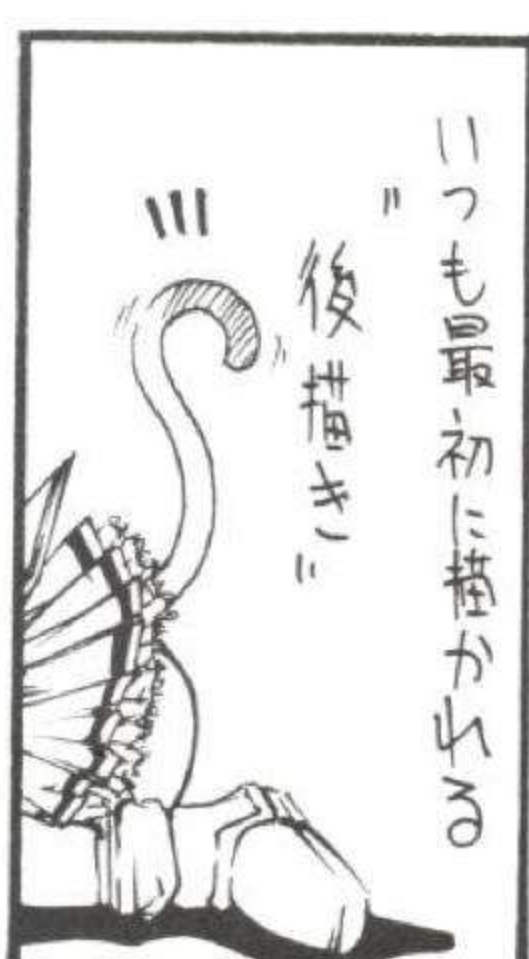 いつも最初に描かれる
"後描き"